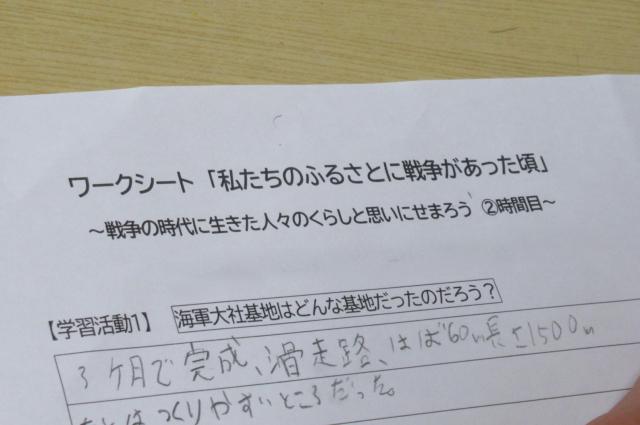 ワークシート「私たちのふるさとに戦争があった頃」
～戦争の時代に生きた人々のくらしと思いにせまろう ②時間目～
【学習活動1】 海軍大社基地はどんな基地だったのだろう？
3ヶ月で完成、滑走路、はば60m長さ1500m
つくりやすいところだった。